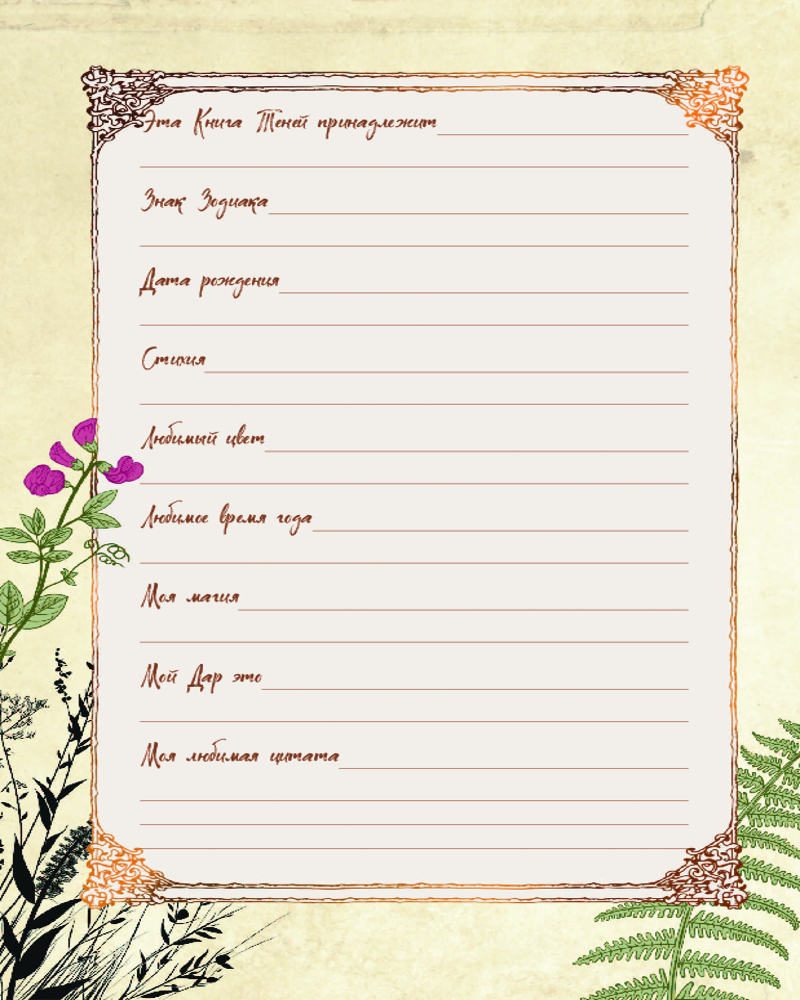 Эта Книга Теней принадлежит
Знак Зодиака
Дата рождения
Стихия
Любимый цвет
Любимое время года
Моя магия
Мой Дар это
Моя любимая цитата